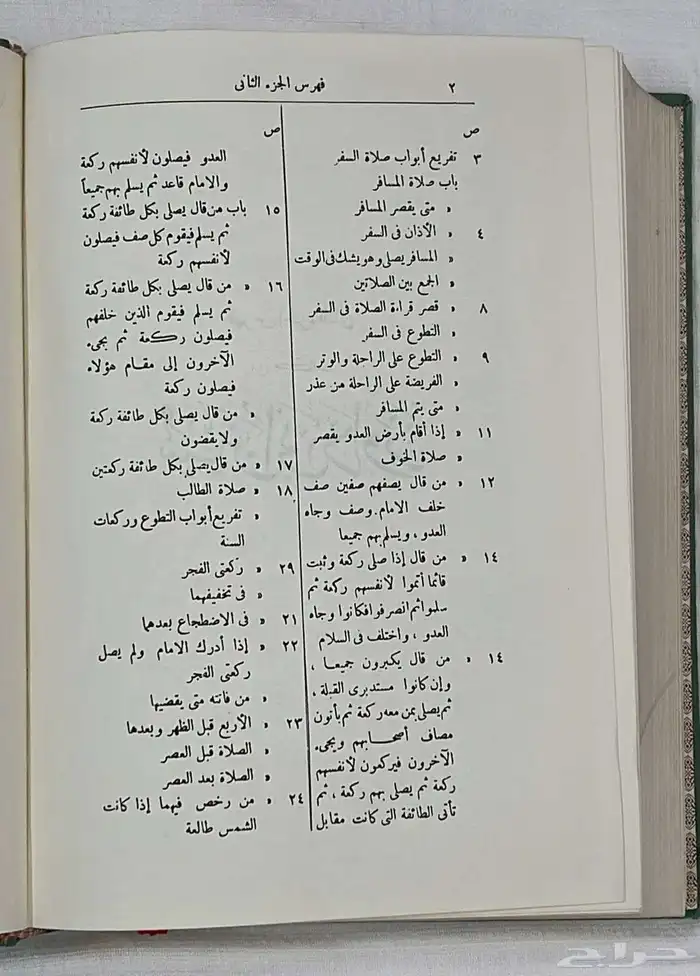 ٢
فهرس الجزء الثانى
ص
٣ تفريع أبواب صلاة السفر
باب صلاة المسافر
» متى يقصر المسافر
٤ » الأذان فى السفر
» المسافر يصلى وهو يشك فى الوقت
» الجمع بين الصلاتين
٨ » قصر قراءة الصلاة فى السفر
» التطوع فى السفر
٩ » التطوع على الراحلة والوتر
» الفريضة على الراحلة من عذر
» متى يتم المسافر
١١ » إذا أقام بأرض العدو يقصر
» صلاة الخوف
١٢ » من قال يصفهم صفين صف
خلف الامام وصف وجاه
العدو ، ويسلم بهم جميعا
١٤ » من قال إذا صلى ركعة وثبت
قائما أتموا لأنفسهم ركعة ثم
سلموا ثم انصرفوا فكانوا وجاه
العدو ، واختلف فى السلام
١٤ » من قال يكبرون جميعا ،
وإن كانوا مستدبرى القبلة ،
ثم يصلى بمن معه ركعة ثم يأتون
مصاف أصحابهم ويجىء
الآخرون فيركعون لأنفسهم
ركعة ثم يصلى بهم ركعة ، ثم
تأتى الطائفة التى كانت مقابل
ص
العدو فيصلون لأنفسهم ركعة
والامام قاعد ثم يسلم بهم جميعاً
١٥ باب من قال يصلى بكل طائفة ركعة
ثم يسلم فيقوم كل صف فيصلون
لأنفسهم ركعة
١٦ » من قال يصلى بكل طائفة ركعة
ثم يسلم فيقوم الذين خلفهم
فيصلون ركعة ثم يجىء
الآخرون إلى مقام هؤلاء
فيصلون ركعة
» من قال يصلى بكل طائفة ركعة
ولا يقضون
١٧ » من قال يصلى بكل طائفة ركعتين
١٨ » صلاة الطالب
» تفريع أبواب التطوع وركعات
السنة
٢٩ » ركعتى الفجر
» فى تخفيفهما
٢١ » فى الاضطجاع بعدهما
٢٢ » إذا أدرك الامام ولم يصل
ركعتى الفجر
» من فاتته متى يقضيها
٢٣ » الأربع قبل الظهر وبعدها
» الصلاة قبل العصر
» الصلاة بعد العصر
٢٤ » من رخص فيهما إذا كانت
الشمس طالعة
حراج